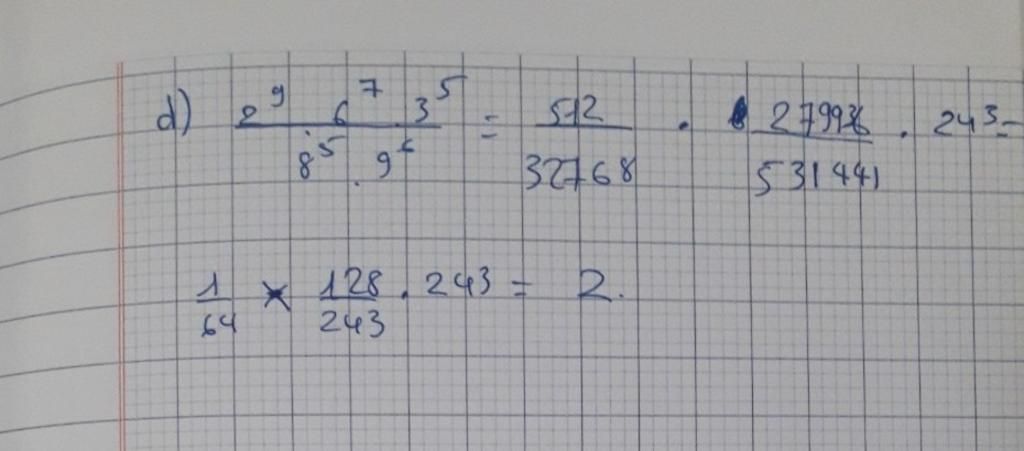 d) 2^9 · 6^7 · 3^5 / 8^5 · 9^6 = 512/32768 · 279936/531441 · 243 =
1/64 × 128/243 · 243 = 2.